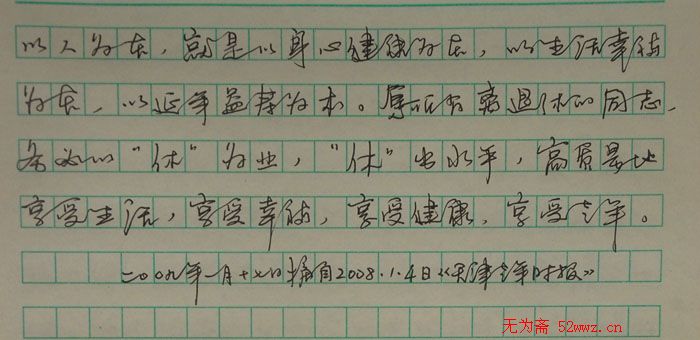 以人为本，就是以身心健康为本，以生活幸福
为本，以延年益寿为本。原所有离退休的同志，
务必以“休”为业，“休”出水平，高质量地
享受生活，享受幸福，享受健康，享受老年。
二〇〇九年一月十七日摘自2008.1.4日《天津老年时报》
无为斋 52wwz.cn